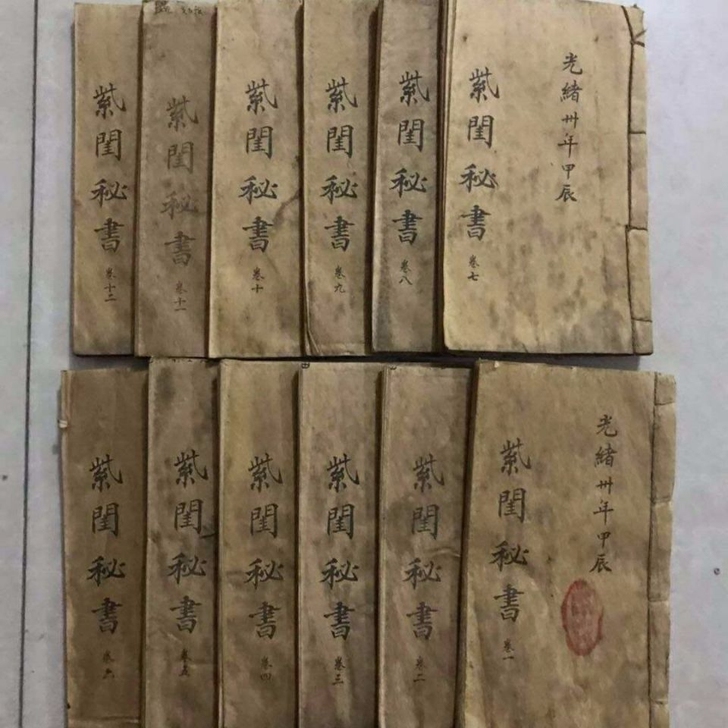 光緒卅年甲辰
紫閨秘書 卷七
紫閨秘書 卷八
紫閨秘書 卷九
紫閨秘書 卷十
紫閨秘書 卷十一
紫閨秘書 卷十二
光緒卅年甲辰
紫閨秘書 卷一
紫閨秘書 卷二
紫閨秘書 卷三
紫閨秘書 卷四
紫閨秘書 卷五
紫閨秘書 卷六